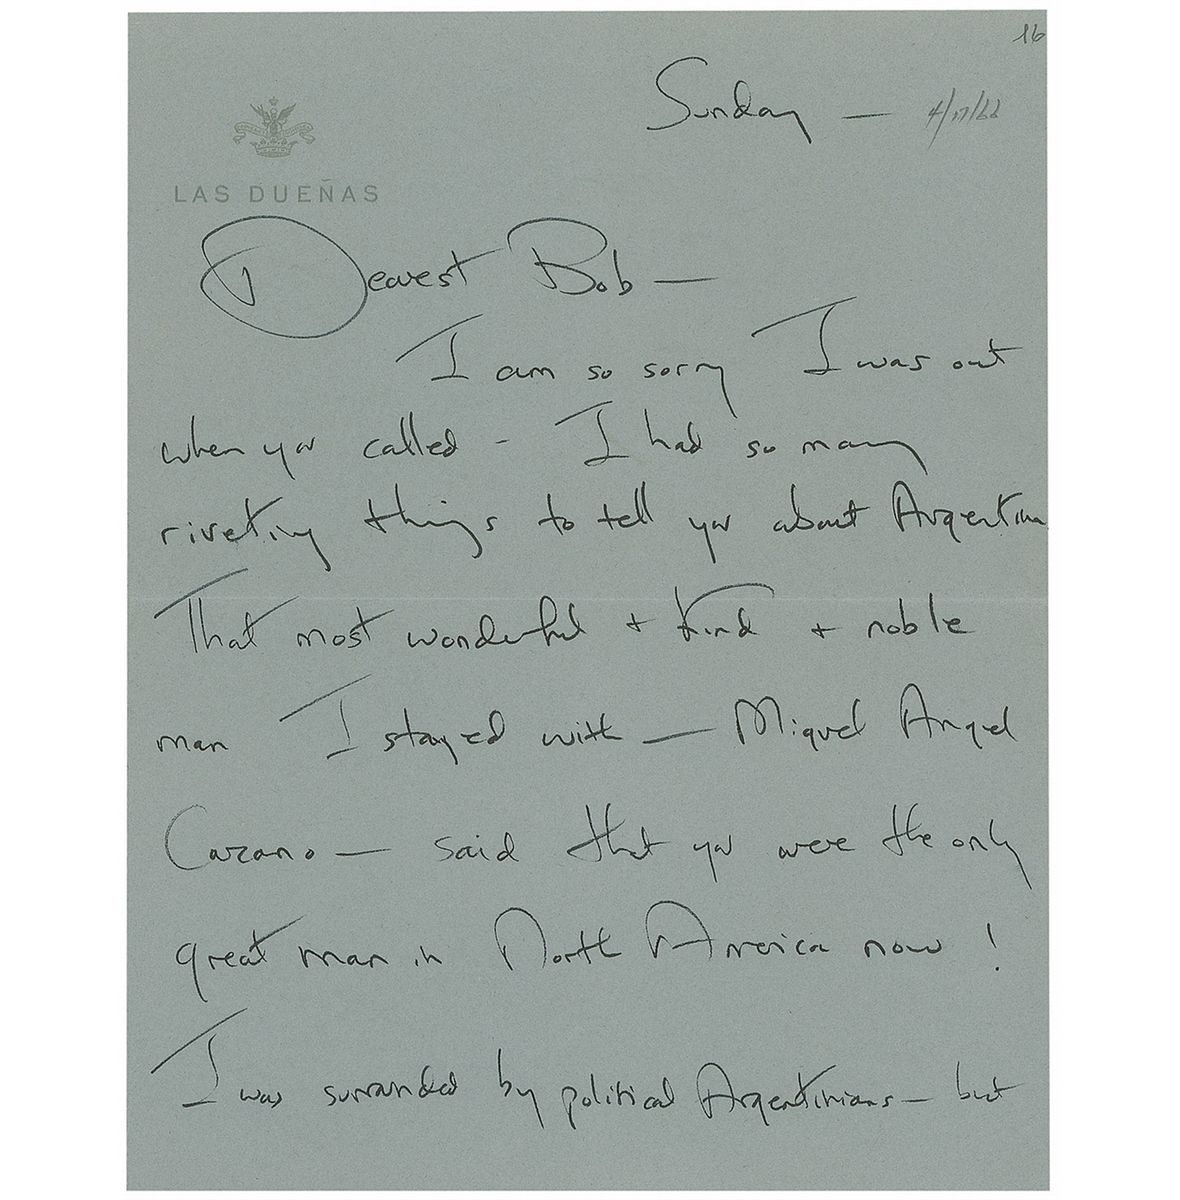 16
Sunday — 4/17/66
LAS DUEÑAS
Dearest Bob —
I am so sorry I was out
when you called - I had so many
riveting things to tell you about Argentina
That most wonderful + kind + noble
man I stayed with — Miguel Angel
Carano — said that you were the only
great man in North America now !
I was surrounded by political Argentinians — but